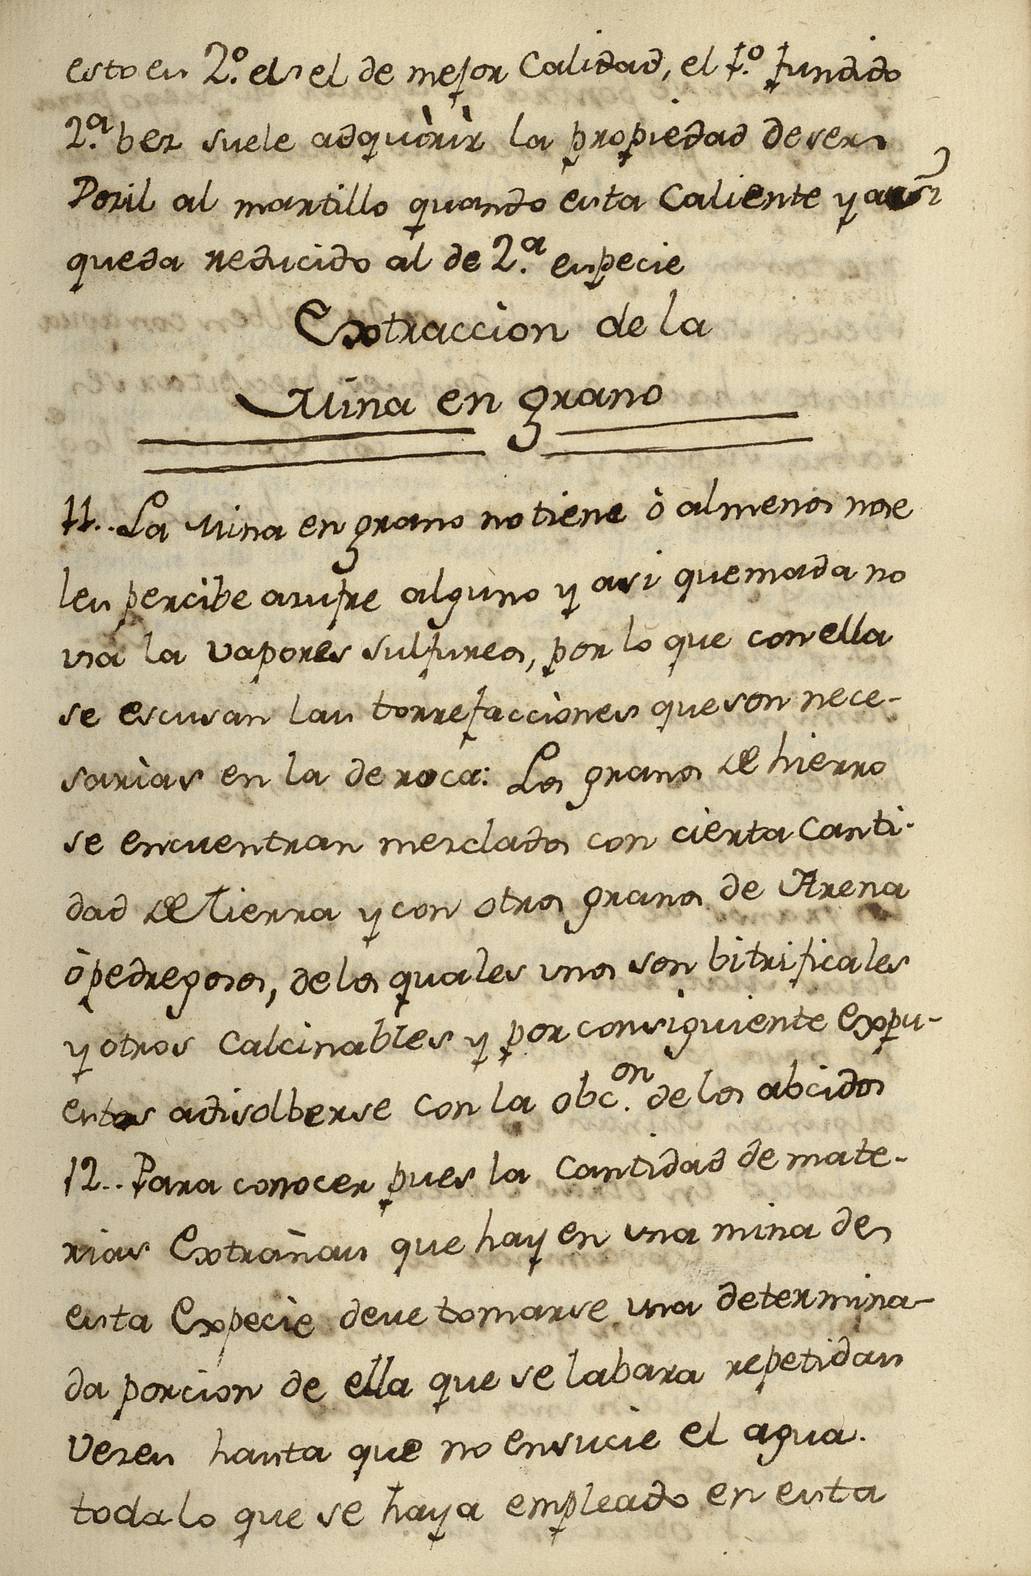 esto en 2.º es el de mejor Calidad, el 1.º fundido
2.ª bez suele adquirir la propiedad de ser
Dozil al martillo quando esta Caliente y asi
queda reducido al de 2.ª especie
Extraccion de la
Mina en grano
11.. La Mina en grano no tiene ò almenos nose
les percibe asufre alguno y asi quemada no
usa la vapores sulfureos, por lo que con ella
se escusan las torrefacciones que son nece-
sarias en la de roca: Los granos de hierro
se encuentran mezclados con cierta Canti-
dad de Tierra y con otros granos de Arena
ò pedregosos, delos quales unos son bitrificales
y otros Calcinables y por consiguiente Expu-
estos adisolberse con la obc.on de los abcidos
12.. Para conocer pues la Cantidad de mate-
rias Extrañas que hay en una mina de
esta Expecie deve tomarse una determina-
da porcion de ella que se labara repetidas
Vezes hasta que no ensucie el agua.
toda lo que se haya empleado en esta